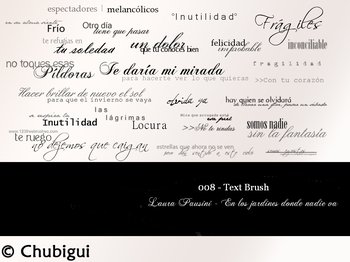 espectadores | melancólicos
"Inutilidad"
Frágiles
Otro día
Frío
tiene que pasar
te refugias en
tu soledad
un dolor
que tu conoces bien
felicidad
improbable
inconciliable
no toques esas
Píldoras
Te daría mi mirada
fragilidad
para hacerte ver lo que quieras
>>Con tu corazón
Hacer brillar de nuevo el sol
para que el invierno se vaya
olvida ya
hay quien se olvidará
Inutilidad
las
lágrimas
Locura
>>>No te rindas
somos nadie
sin la fantasía
te ruego
no dejemos que caigan
estrellas que ahora no se ven
008 - Text Brush
Laura Pausini - En los jardines donde nadie va
© Chubigui